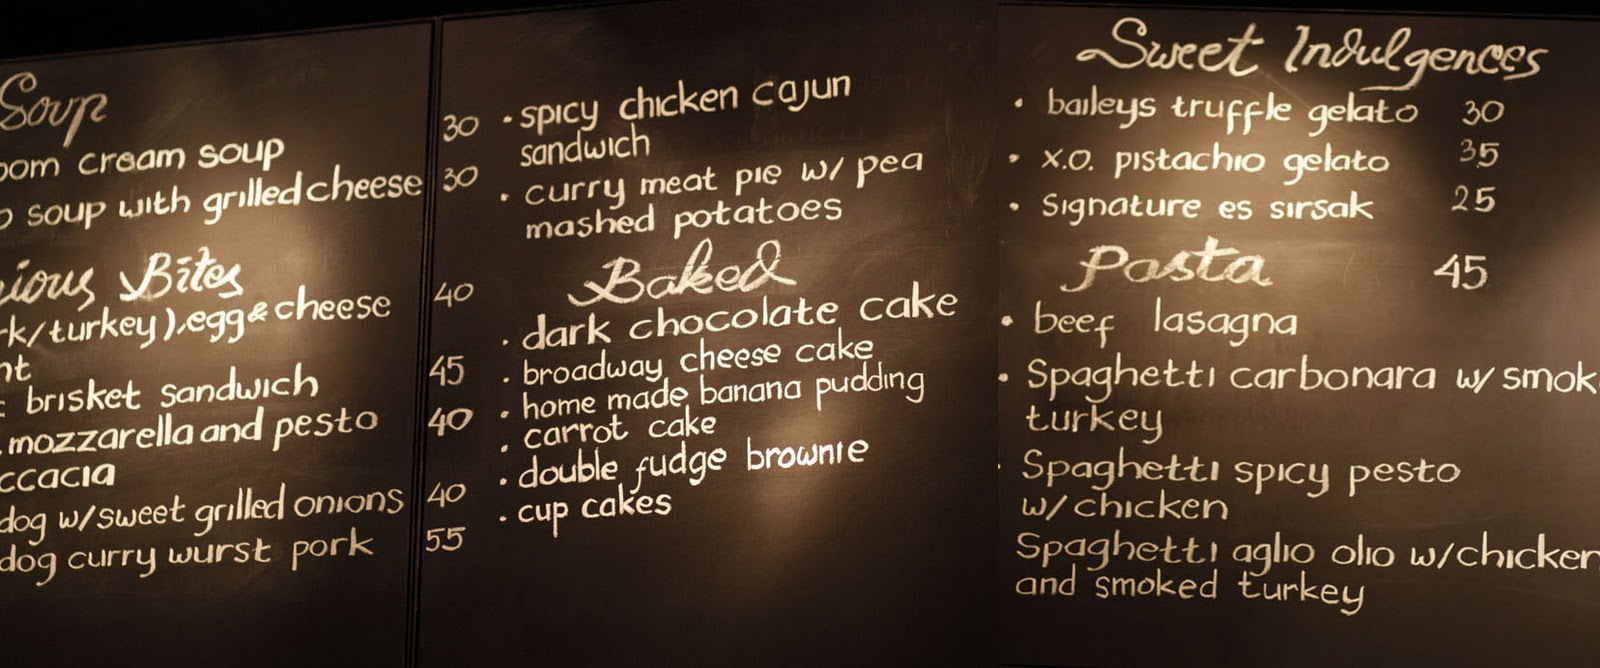 Soup
cream soup 30
soup with grilled cheese 30
Bites
/turkey), egg & cheese 40
brisket sandwich 45
mozzarella and pesto 40
dog w/sweet grilled onions 40
dog curry wurst pork 55
· spicy chicken cajun
sandwich
· curry meat pie w/ pea
mashed potatoes
Baked
· dark chocolate cake
· broadway cheese cake
· home made banana pudding
· carrot cake
· double fudge brownie
· cup cakes
Sweet Indulgences
· baileys truffle gelato 30
· x.o. pistachio gelato 35
· signature es sirsak 25
Pasta 45
· beef lasagna
· Spaghetti carbonara w/ smok
turkey
· Spaghetti spicy pesto
w/ chicken
Spaghetti aglio olio w/chicken
and smoked turkey